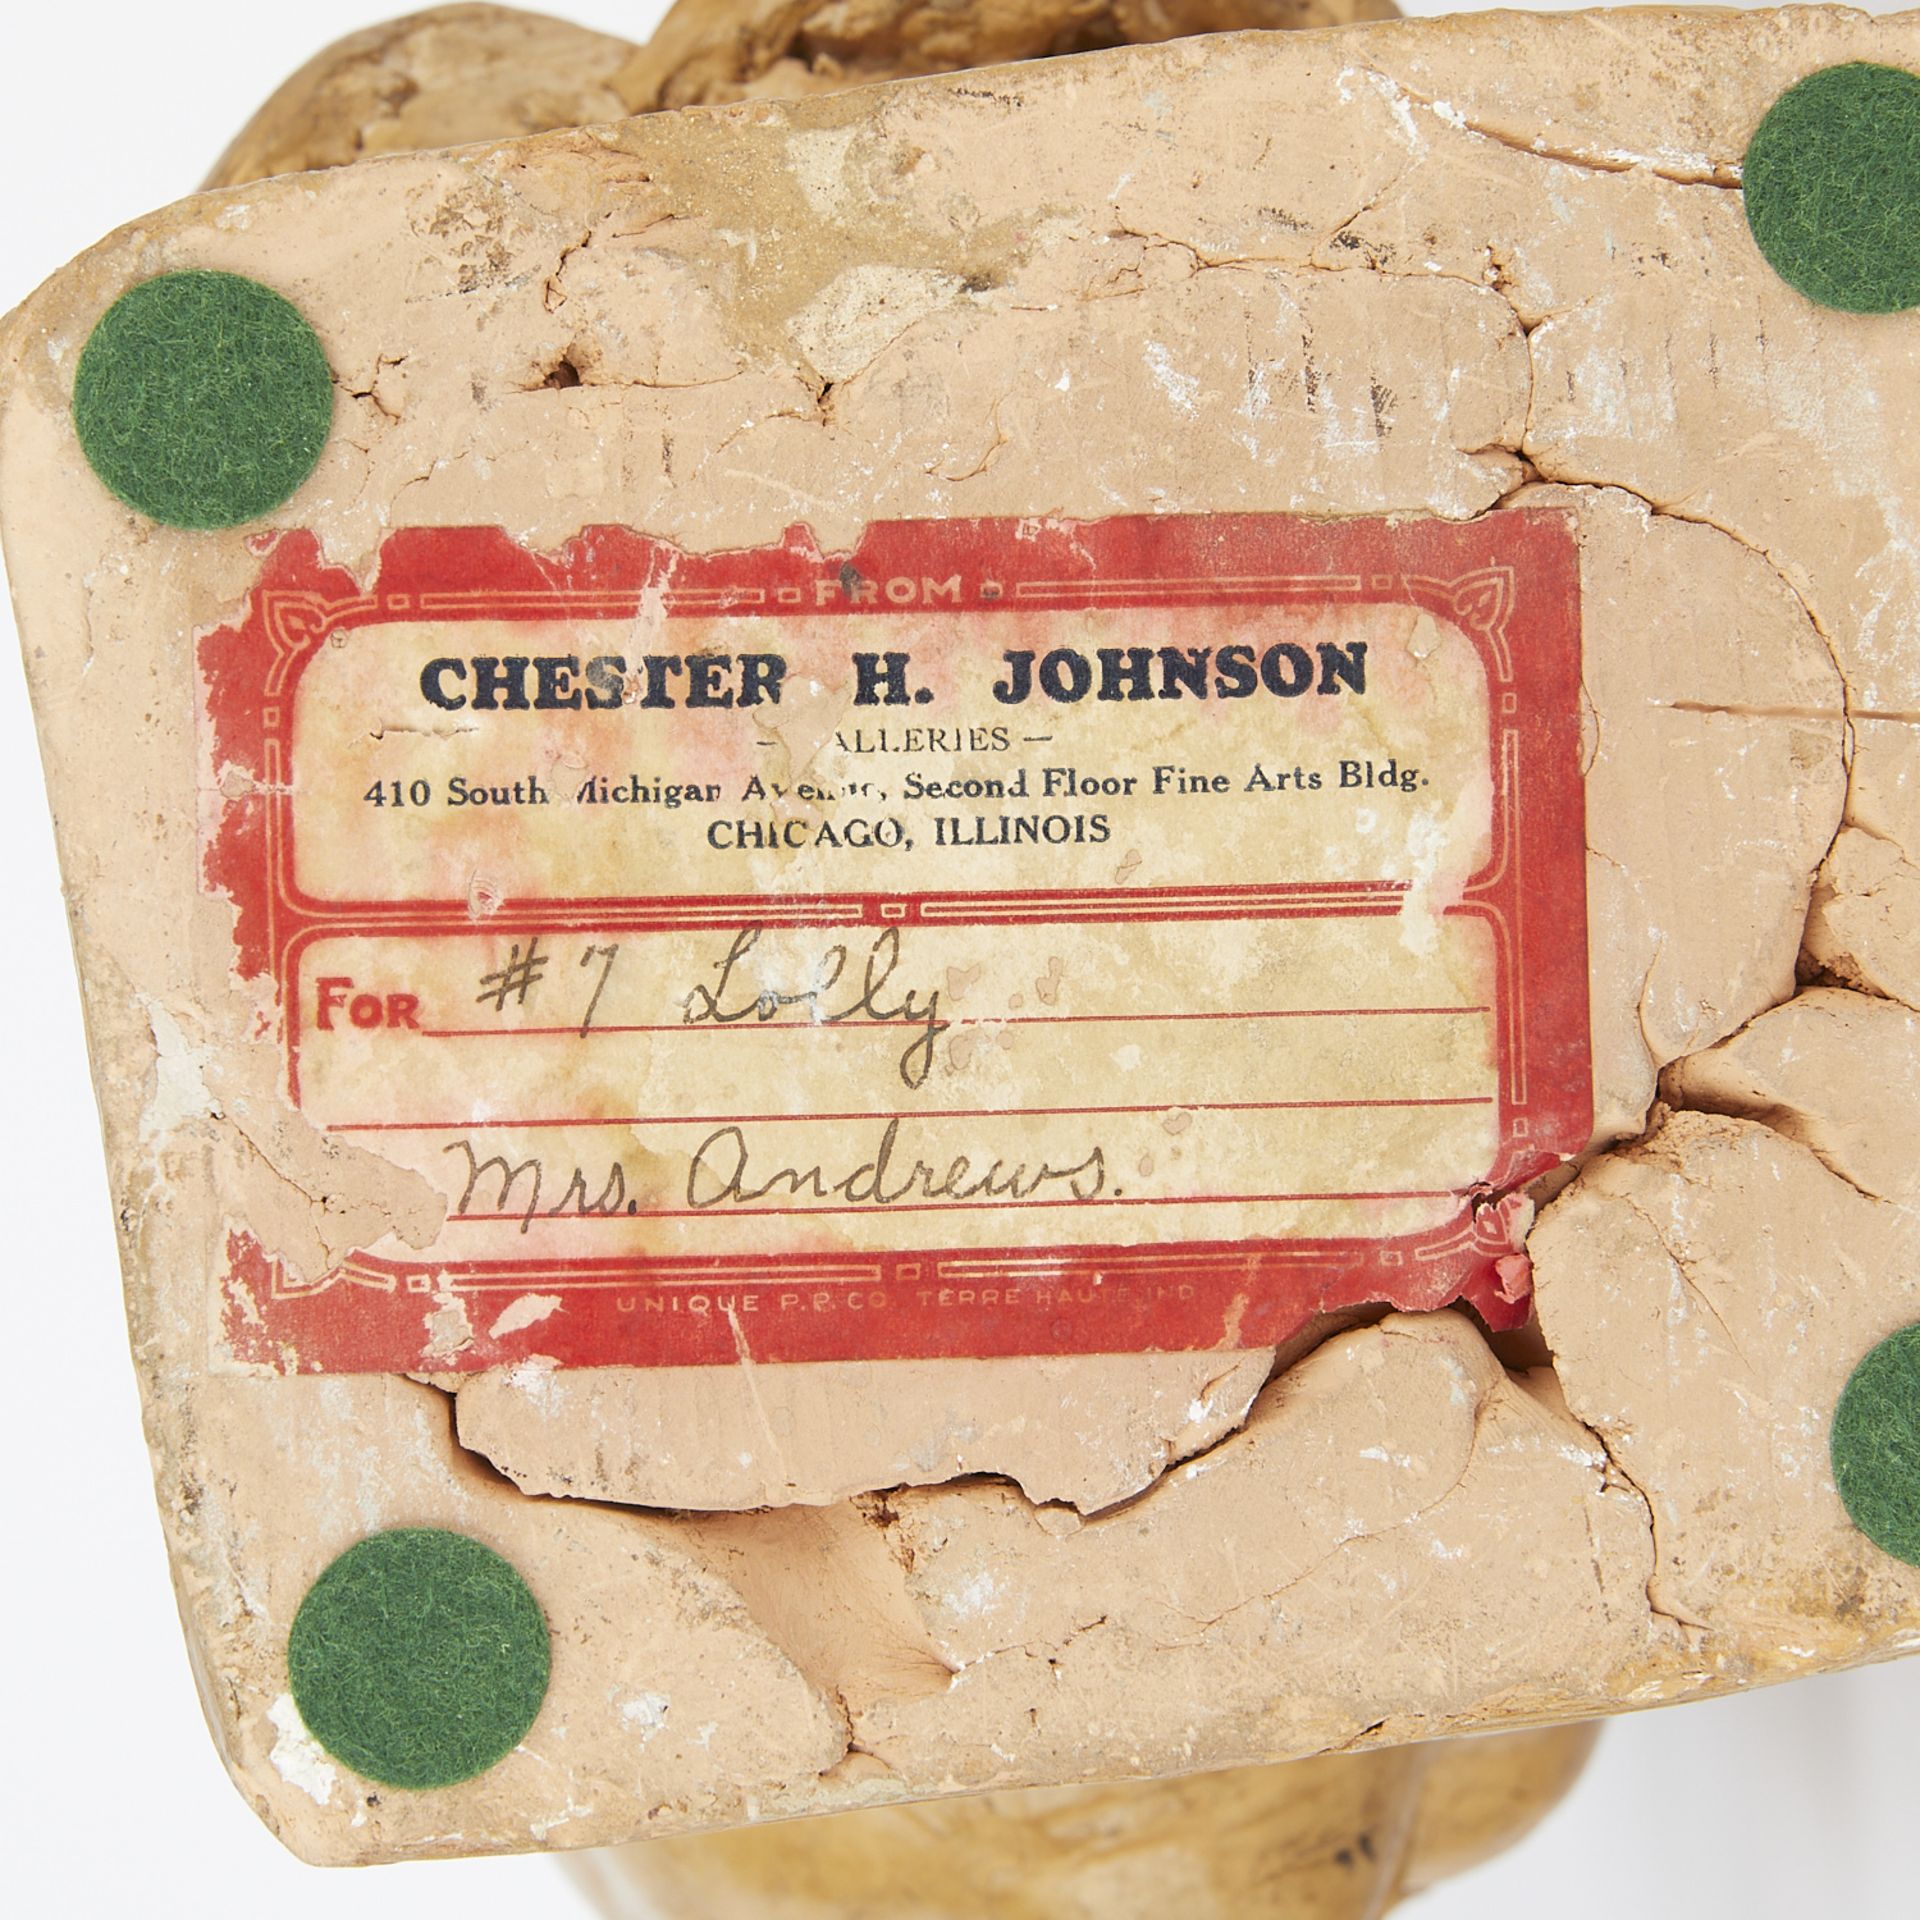 FROM
CHESTER H. JOHNSON
— ALLERIES —
410 South Michigan Avenue, Second Floor Fine Arts Bldg.
CHICAGO, ILLINOIS
FOR #7 Lolly
Mrs. Andrews.
UNIQUE P.P. CO. TERRE HAUTE, IND.